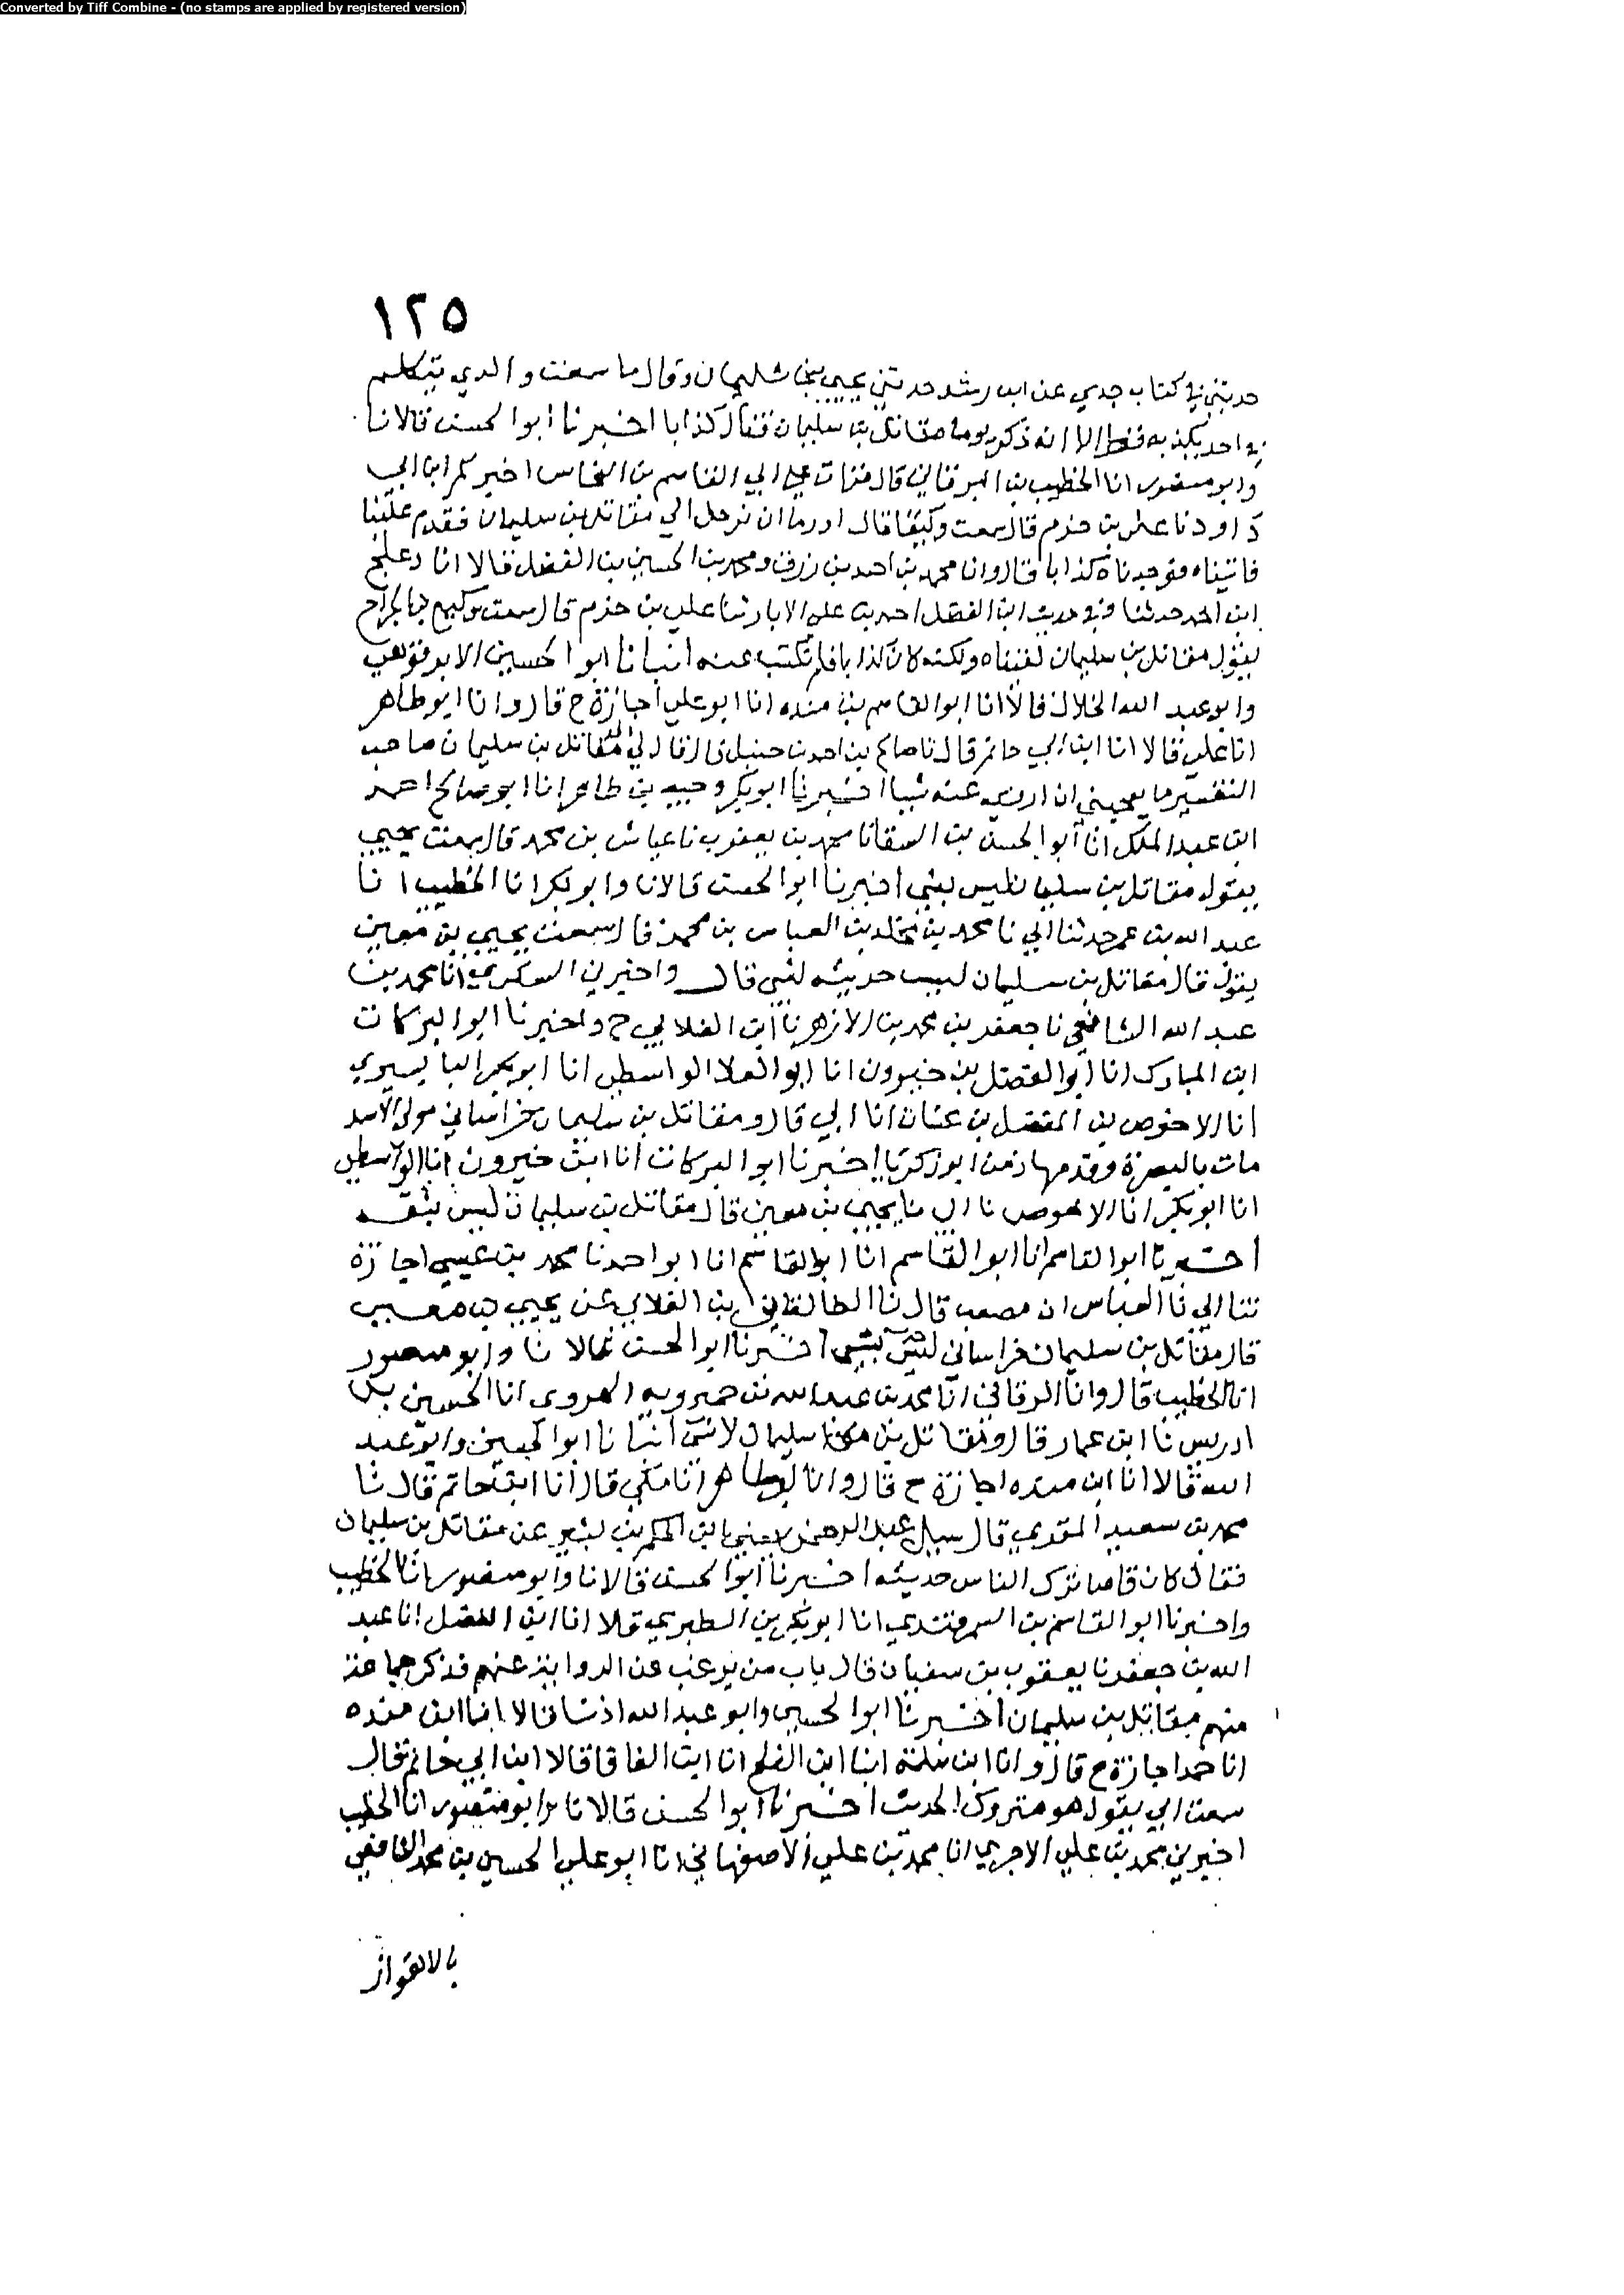 Converted by Tiff Combine - (no stamps are applied by registered version)
١٢٥
حديثي في كتاب جدي عن ابن رشد حدثني يحيي بن سليمان وقال ما سمعت والدي يتكلم
في احد يكذبه قط الا انه ذكر يوما مقاتل بن سليمان فقال كذابا اخبرنا ابو الحسن قالا نا
وابو منصور انا الخطيب بن البرقاني قال قرات علي ابي القاسم بن النخاس اخبركم ابن ابي
داود نا علي بن خشرم قال سمعت وكيعا قال اردنا ان نرحل الي مقاتل بن سليمان فقدم علينا
فاتيناه فوجدناه كذابا قال وانا محمد بن احمد بن رزق ومحمد بن الحسين بن الفضل قالا انا دعلج
ابن احمد حدثنا وفي حديث ابن الفضل احمد بن علي الابار نا علي بن خشرم قال سمعت وكيع بن الجراح
يقول مقاتل بن سليمان لقيناه ولكنه كان كذابا فلم نكتب عنه انبانا ابو الحسين الابرقوهي
وابو عبد الله الخلال قالا انا ابو القاسم بن منده انا ابو علي اجازة ح قال وانا ابو طاهر
انا علي قالا انا ابن ابي حاتم قال نا صالح بن احمد بن حنبل قال قال لي مقاتل بن سليمان صاحب
التفسير ما يعجبني ان اروي عنه شيا اخبرنا ابو بكر وجيه بن طاهر انا ابو صالح احمد
ابن عبد الملك انا ابو الحسن بن السقا نا محمد بن يعقوب نا عباس بن محمد قال سمعت يحيي
يقول مقاتل بن سليمان ليس بشي اخبرنا ابو الحسن قالا نا وابو بكر انا الخطيب انا
عبد الله بن عمر حدثنا ابي نا محمد بن مخلد بن العباس بن محمد قال سمعت يحيي بن معين
يقول قال مقاتل بن سليمان ليس حديثه لشي قال واخبرني السكري انا محمد بن
عبد الله الشافعي نا جعفر بن محمد بن الازهر نا ابن الغلابي ح واخبرنا ابو البركات
ابن المبارك انا ابو الفضل بن خيرون انا ابو العلا الواسطي انا ابو بكر البابسيري
انا الاحوص بن المفضل بن غسان انا ابي قال ومقاتل بن سليمان خراساني مولي الاسد
مات بالبصرة وقدمها زمن ابو زكريا اخبرنا ابو البركات انا ابن خيرون انا الواسطي
انا ابو بكر انا الاحوص نا ابي نا يحيي بن معين قال مقاتل بن سليمان ليس بثقه
اخبرنا ابو القاسم انا ابو القاسم انا ابو القاسم انا ابو احمد نا محمد بن عيسي اجازة
ثنا ابي نا العباس ان مصعب قال نا الطالقاني بن الغلابي عن يحيي بن معين
قال مقاتل بن سليمان خراساني ليس بشي اخبرنا ابو الحسن قالا نا وابو منصور
انا الخطيب قال وانا البرقاني انا محمد بن عبد الله بن حميرويه الهروي انا الحسين بن
ادريس نا ابن عمار قال ومقاتل بن سليمان لا شي انبانا ابو الحسين وابو عبد
الله قالا انا ابن منده اجازة ح قال وانا ابو طاهر انا علي قال انا ابن حاتم قال نا
محمد بن سعيد المقدمي قال سيل عبد الرحمن يعني ابن الحكم بن بشير عن مقاتل بن سليمان
فقال كان قاصا ترك الناس حديثه اخبرنا ابو الحسن قالا نا وابو منصور انا الخطيب
واخبرنا ابو القاسم بن السمرقندي انا ابو بكر بن الطبري قالا انا ابن الفضل انا عبد
الله بن جعفر نا يعقوب بن سفيان قال باب من يرغب عن الروايه عنهم فذكر جماعة
منهم مقاتل بن سليمان اخبرنا ابو الحسين وابو عبد الله اذنا قالا انا ابن منده
انا حمد اجازة ح قال وانا ابن سلمة انبا ابن الفلح انا ابن الفافا قالا ابن ابي حاتم قال
سمعت ابي يقول هو متروك الحديث اخبرنا ابو الحسن قالا نا وابو منصور انا الخطيب
اخبرني محمد بن علي الاجري انا محمد بن علي الاصفهاني انا ابو علي الحسين بن محمد الشافعي
بالاهواز